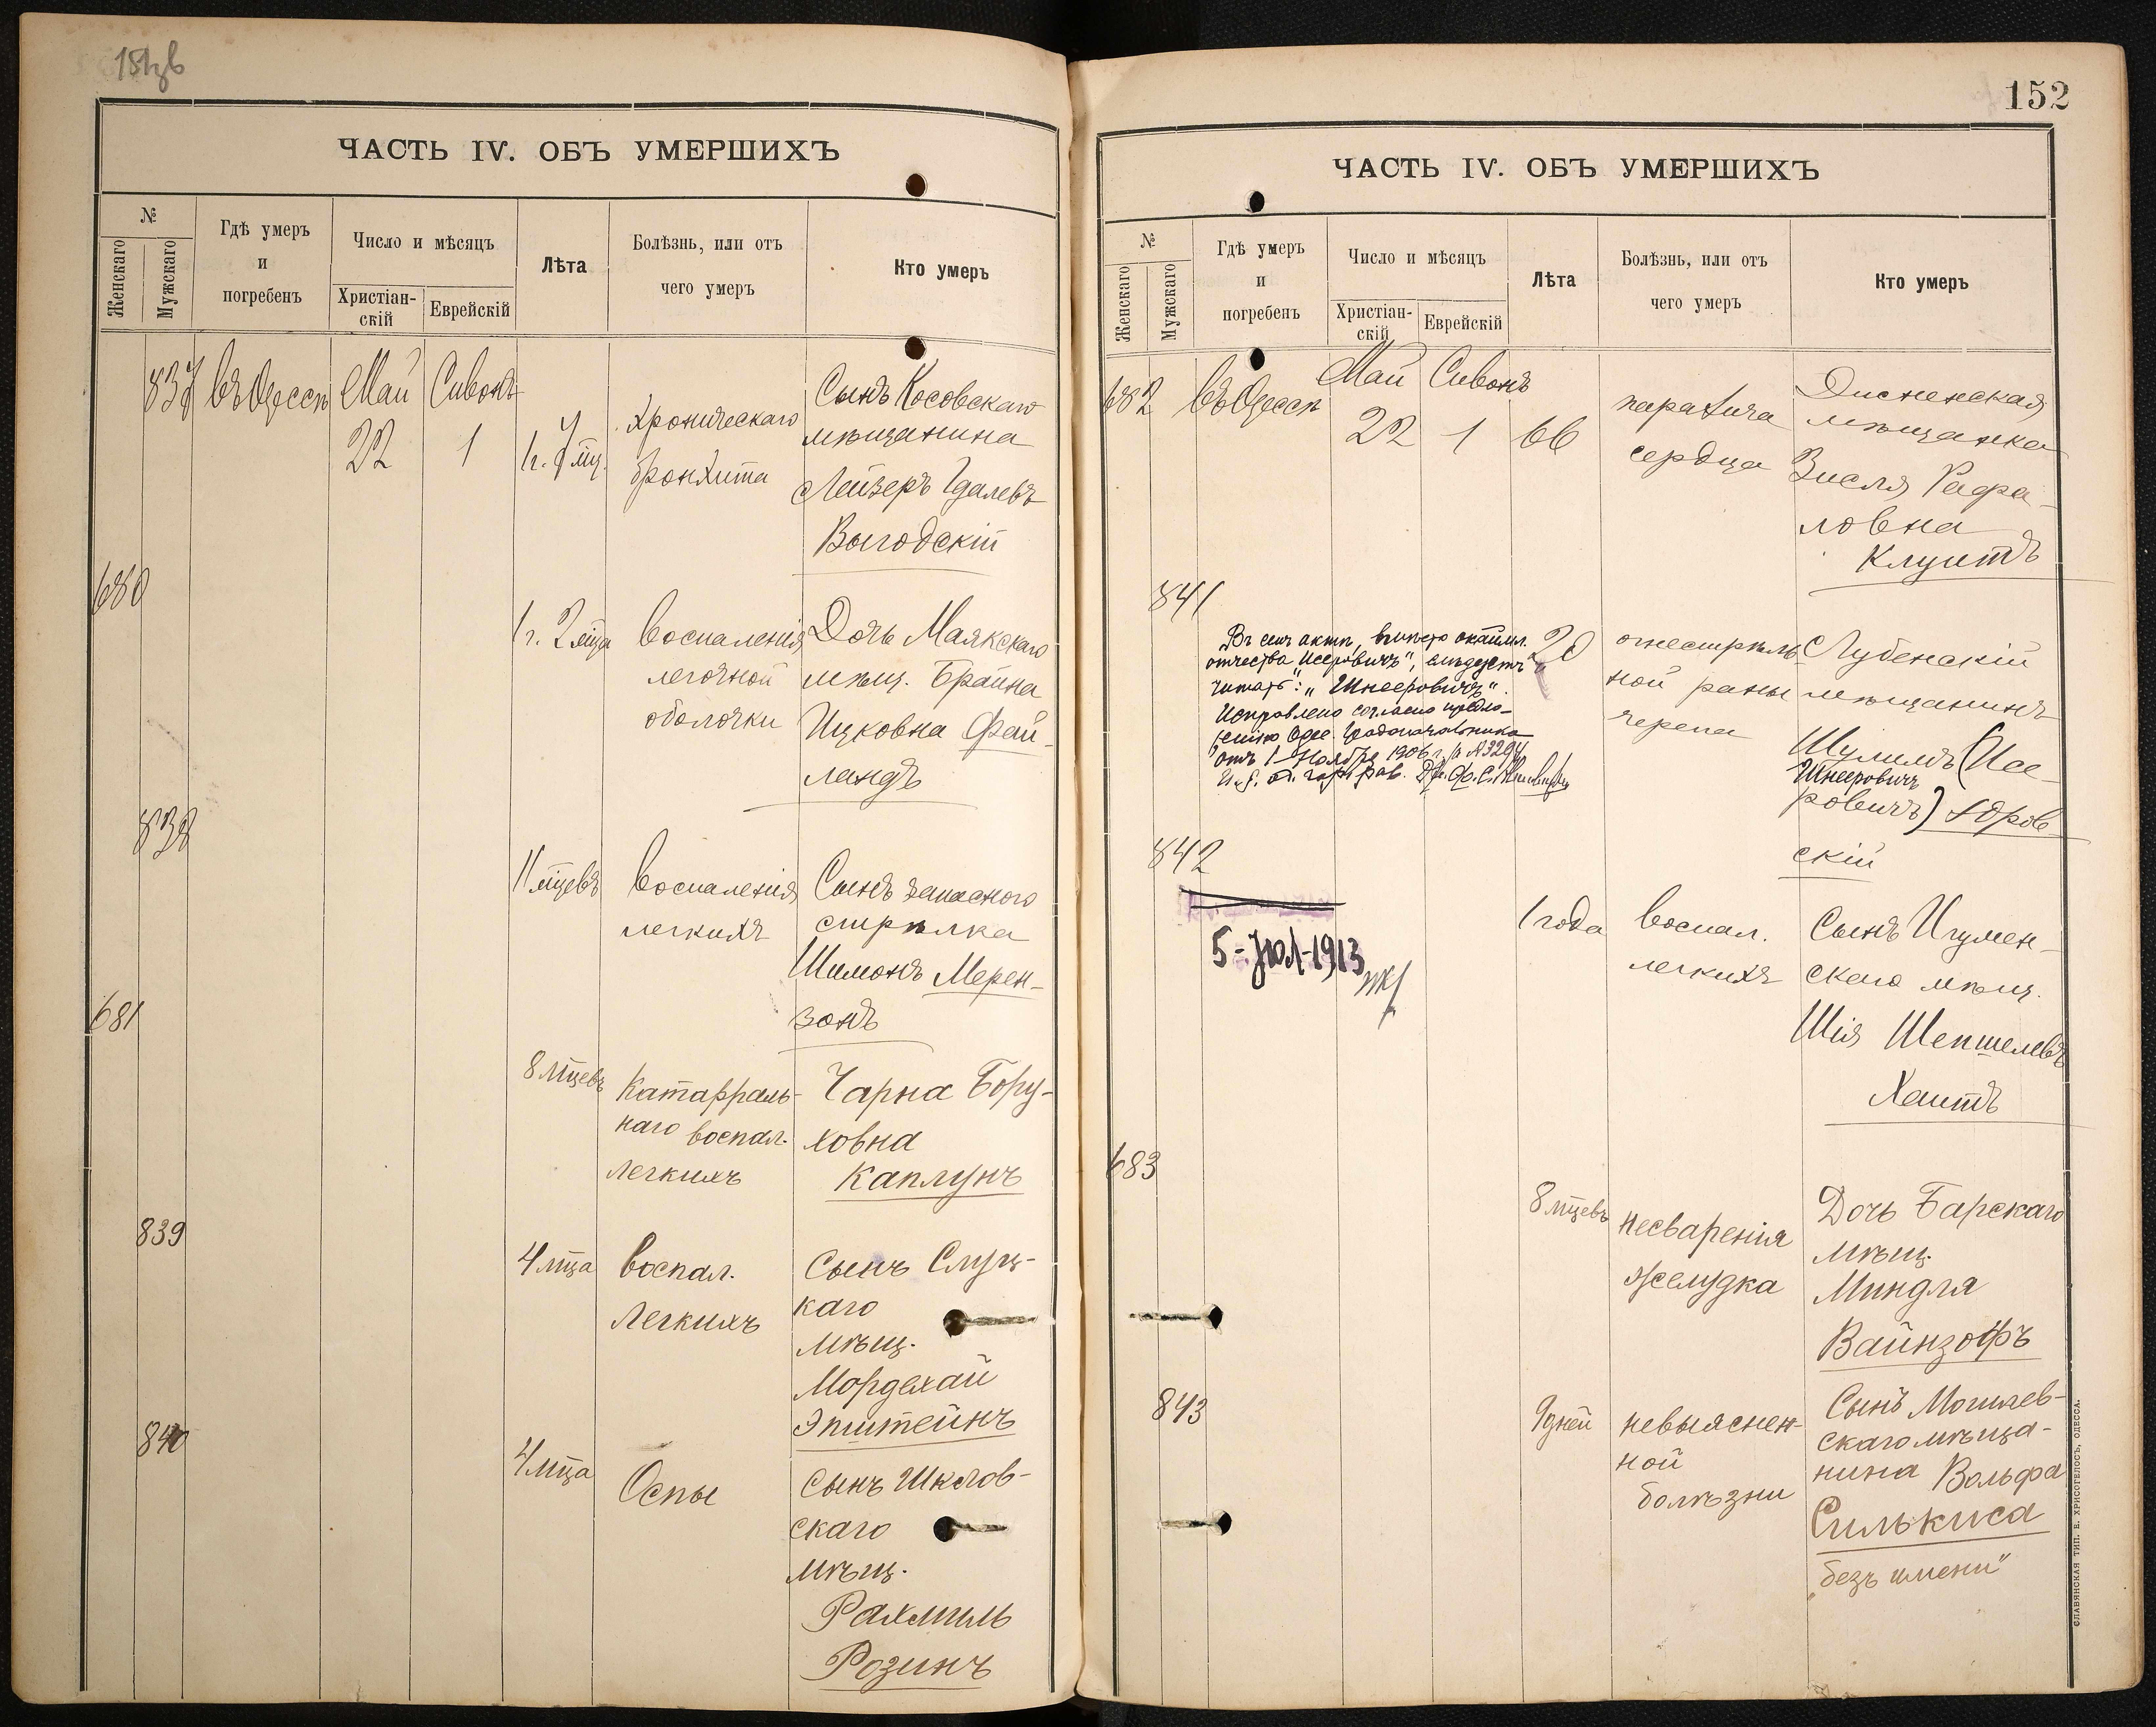 ЧАСТЬ IV. ОБЪ УМЕРШИХЪ
№
Женскаго
Мужскаго
Гдѣ умеръ
и
погребенъ
Число и мѣсяцъ
Христіан-
скій
Еврейскій
Лѣта
Болѣзнь, или отъ
чего умеръ
Кто умеръ
837
въ Одессѣ
Май
22
Сивонъ
1
1 г. мц.
хроническаго
бронхита
Сынъ Косовскаго
мѣщанина
Лейзеръ Идалевъ
Выгодскій
680
1 г. 2 мца
воспаленія
легочной
оболочки
Дочь Маякскаго
мѣщ. Брайна
Ицковна Фай-
ландъ
838
11 мцевъ
воспаленія
легкихъ
Сынъ запасного
стрѣлка
Шимонъ Мерен-
зонъ
681
8 мцевъ
Катарраль-
наго воспал.
легкихъ
Чарна Бору-
ховна
Каплунъ
839
4 мца
воспал.
легкихъ
Сынъ Слуц-
каго
мѣщ.
Мордехай
Эпштейнъ
840
4 мца
Оспы
Сынъ Шклов-
скаго
мѣщ.
Рахмиль
Розинъ
152
ЧАСТЬ IV. ОБЪ УМЕРШИХЪ
№
Женскаго
Мужскаго
Гдѣ умеръ
и
погребенъ
Число и мѣсяцъ
Христіан-
скій
Еврейскій
Лѣта
Болѣзнь, или отъ
чего умеръ
Кто умеръ
682
въ Одессѣ
Май
22
Сивонъ
1
66
паралича
сердца
Дисненская
мѣщанка
Зисля Рафа-
ловна
Клуитъ
841
Въ семъ актѣ, вмѣсто
отчества „Исеровичъ", слѣдуетъ
читать: „Шнееровичъ".
Исправлено согласно предло-
женію Одес. Градоначальника
отъ 1 Ноября 1906 г. № 3294
20
огнестрѣль-
ной раны
черепа
Лубенскій
мѣщанинъ
Шулимъ (Исе-
Шнееровичъ
ровичъ) Здров-
скій
842
5-ЮЛ-1913
1 года
воспал.
легкихъ
Сынъ Игумен-
скаго мѣщ.
Шія Шепшелевъ
Хаитъ
683
8 мцевъ
несваренія
желудка
Дочь Барскаго
мѣщ.
Миндля
Вайнзофъ
843
9 дней
невыяснен-
ной
болѣзни
Сынъ Могилев-
скаго мѣща-
нина Вольфа
Силькиса
„безъ имени"
СЛАВЯНСКАЯ ТИП. Е. ХРИСОГЕЛОСЪ, ОДЕССА.